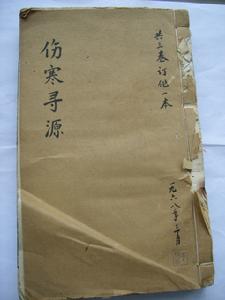 伤寒寻源
共三卷订他一本
一九六八年三月